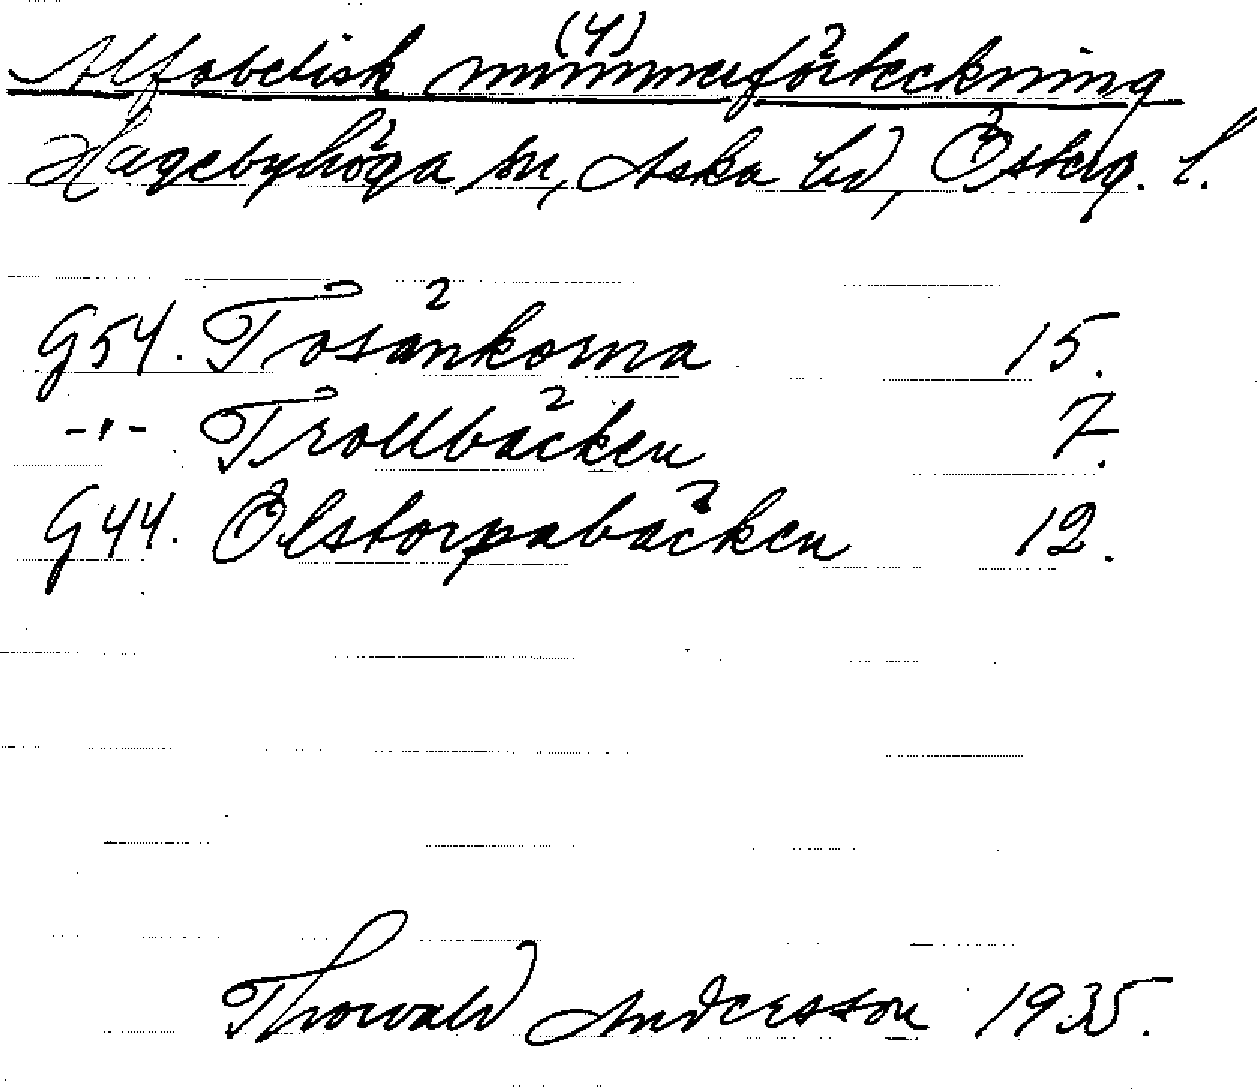 (4)
Alfabetisk nummerförteckning
Hagebyhöga sn, Aska hd, Österg. l.
G54. Tosänkorna 15.
-"- Trollbäcken 7.
G44. Ölstorpabäcken 12.
Thorvald Andersson 1935.